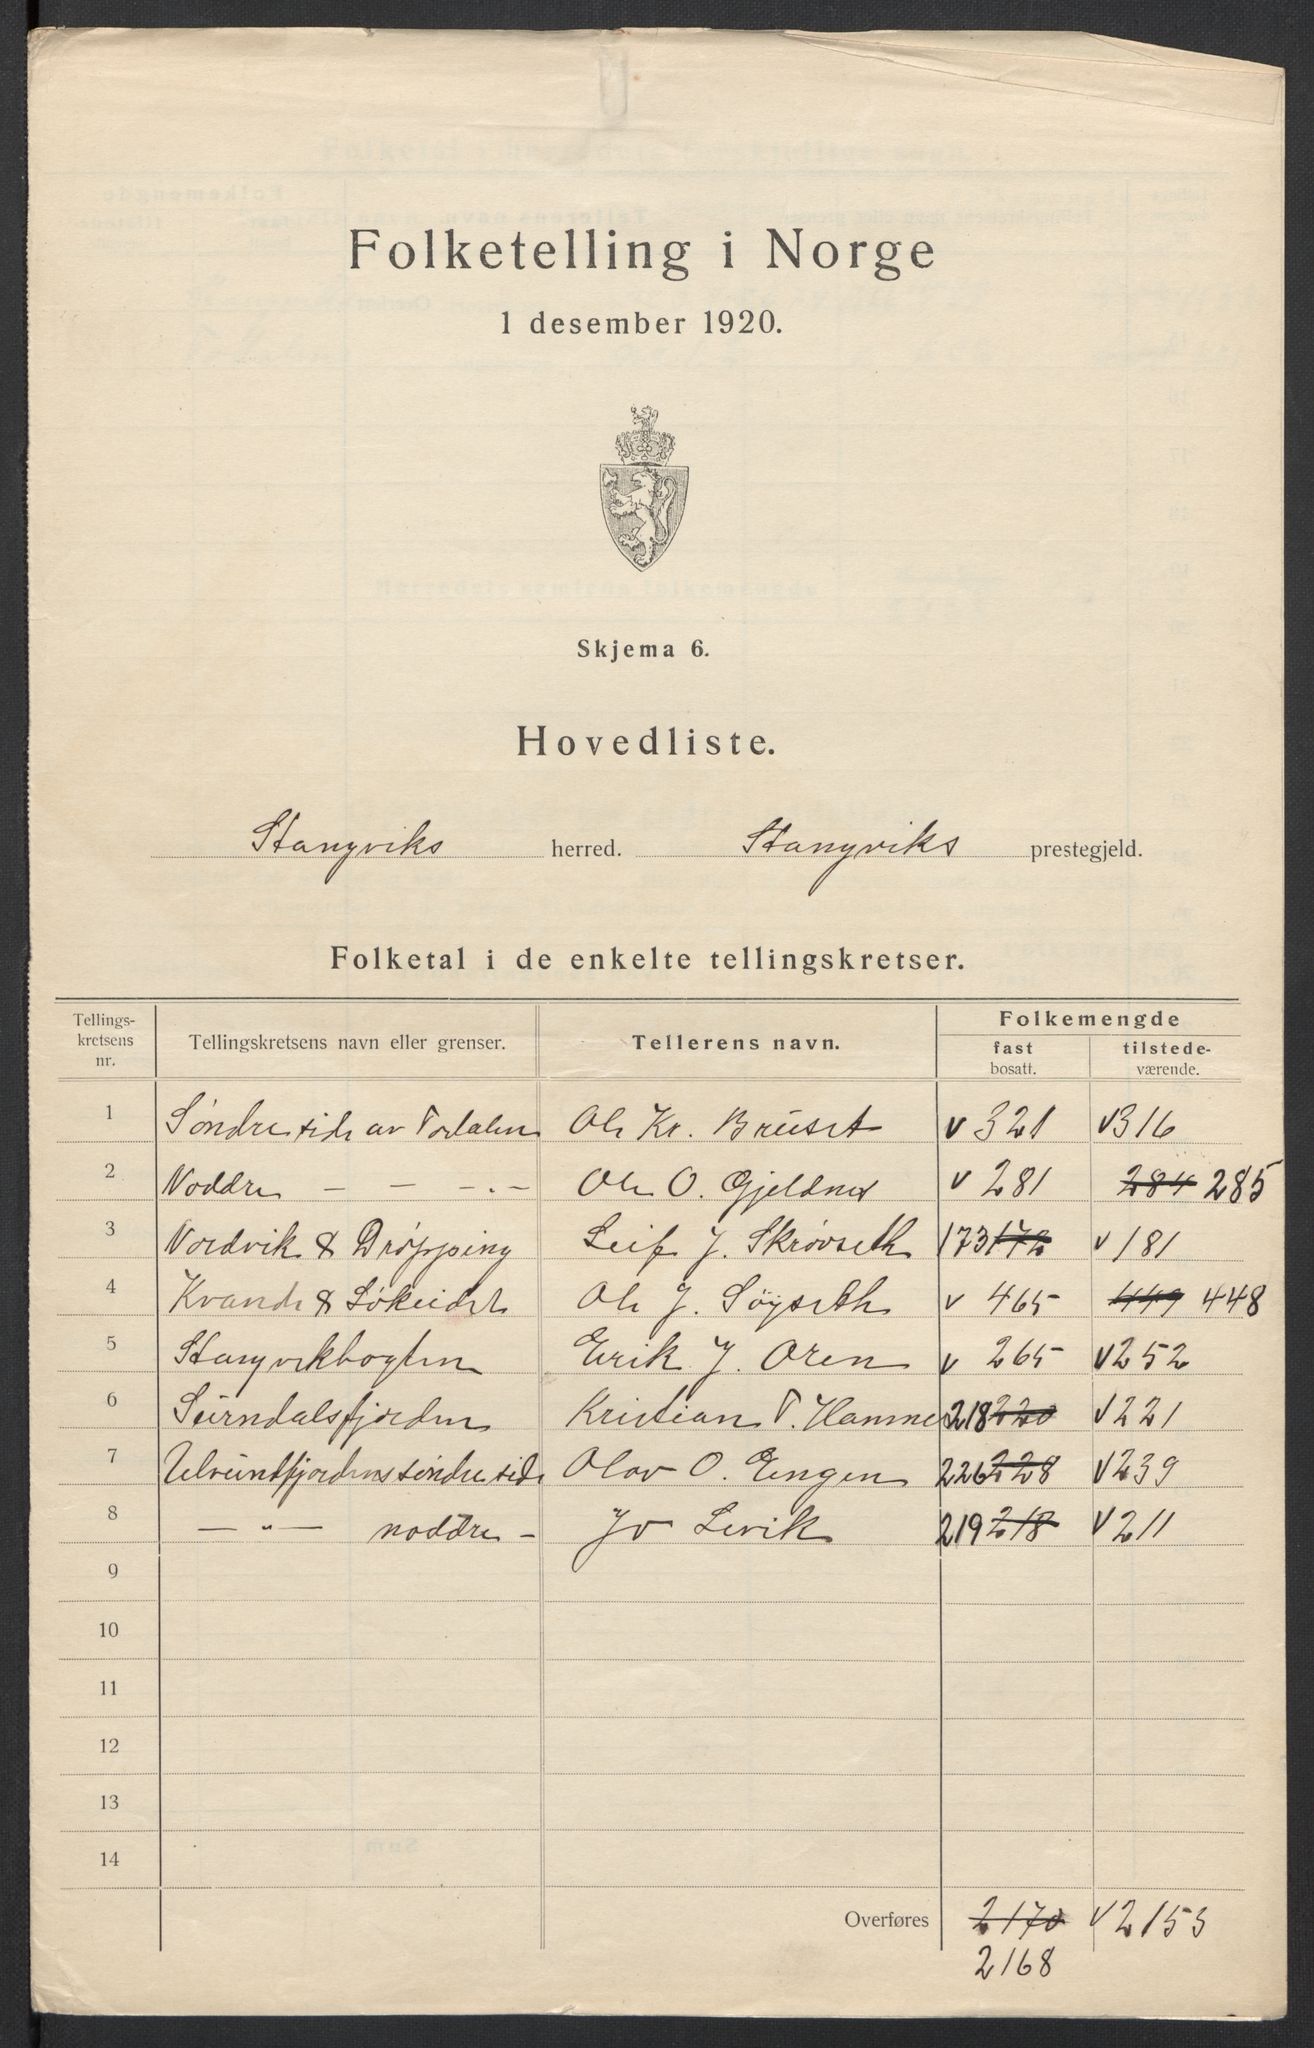 Folketelling i Norge
1 desember 1920.
Skjema 6.
Hovedliste.
Stangviks herred. Stangviks prestegjeld.
Folketal i de enkelte tellingskretser.
Tellings-kretsens nr. Tellingskretsens navn eller grenser. Tellerens navn. Folkemengde
fast bosatt. tilstede-værende.
1 Søndre side av Todalen Ole Kr. Bruset v 321 v 316
2 Noddre — — -.- Ole O. Gjeldnes v 281 284 285
3 Nordvik & Drøpping Leif J. Skrøvseth 173 172 v 181
4 Kvande & Løkeidet Ole J. Søyseth v 465 449 448
5 Stangvikbogten Eirik J. Oren v 265 v 252
6 Surndalsfjorden Kristian T. Hamnes 218 220 v 221
7 Ulvundfjordens søndre side Olav O. Engen 226 228 v 239
8 — " — noddre - Jo Levik 219 218 v 211
9
10
11
12
13
14
Overføres 2170 v 2153
2168